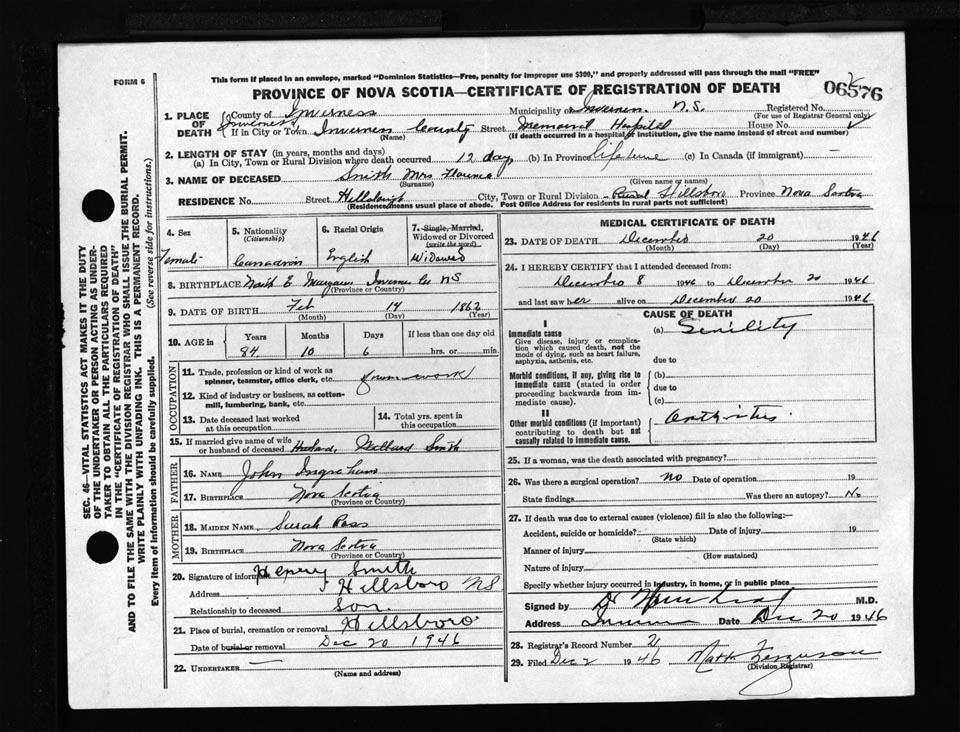 FORM 6
This form if placed in an envelope, marked "Dominion Statistics—Free, penalty for improper use $300," and properly addressed will pass through the mail "FREE"
PROVINCE OF NOVA SCOTIA—CERTIFICATE OF REGISTRATION OF DEATH
06576
1. PLACE OF DEATH
County of Inverness Municipality of Inverness. N.S. Registered No.
(For use of Registrar General only)
Inverness
If in City or Town Inverness County Street Memorial Hospital House No.
(Name) (If death occurred in a hospital or institution, give the name instead of street and number)
2. LENGTH OF STAY (in years, months and days)
(a) In City, Town or Rural Division where death occurred 12 day (b) In Province Lifetime (c) In Canada (if immigrant) —
3. NAME OF DECEASED Smith Mrs Florence
(Surname) (Given name or names)
RESIDENCE No. Street Hillsboro City, Town or Rural Division Rural Hillsboro Province Nova Scotia
(Residence means usual place of abode. Post Office Address for residents in rural parts not sufficient)
4. Sex
Female
5. Nationality
(Citizenship)
Canadian
6. Racial Origin
English
7. Single, Married,
Widowed or Divorced
(write the word)
Widowed
8. BIRTHPLACE North E Margaree Inverness Co NS
(Province or Country)
9. DATE OF BIRTH Feb 14 1862
(Month) (Day) (Year)
10. AGE in
Years Months Days If less than one day old
84 10 6 hrs. or min.
OCCUPATION
11. Trade, profession or kind of work as
spinner, teamster, office clerk, etc.
12. Kind of industry or business, as cotton-
mill, lumbering, bank, etc.
13. Date deceased last worked
at this occupation
14. Total yrs. spent in
this occupation
15. If married give name of wife
or husband of deceased Husband, Willard Smith
FATHER
16. NAME John Ingraham
17. BIRTHPLACE Nova Scotia
(Province or Country)
MOTHER
18. MAIDEN NAME Sarah Ross
19. BIRTHPLACE Nova Scotia
(Province or Country)
20. Signature of informant Henry Smith
Address Hillsboro NS
Relationship to deceased Son.
21. Place of burial, cremation or removal Hillsboro
Date of burial or removal Dec 20 1946
22. UNDERTAKER —
(Name and address)
MEDICAL CERTIFICATE OF DEATH
23. DATE OF DEATH December 20 1946
(Month) (Day) (Year)
24. I HEREBY CERTIFY that I attended deceased from:
December 8 1946 to December 20 1946
and last saw her alive on December 20 1946
CAUSE OF DEATH
I
Immediate cause
Give disease, injury or complica-
tion which caused death, not the
mode of dying, such as heart failure,
asphyxia, asthenia, etc.
(a) Senility
due to
Morbid conditions, if any, giving rise to
immediate cause (stated in order
proceeding backwards from im-
mediate cause).
(b)
due to
(c)
II
Other morbid conditions (if important)
contributing to death but not
causally related to immediate cause.
Arthritis.
25. If a woman, was the death associated with pregnancy?
26. Was there a surgical operation? No Date of operation 19
State findings Was there an autopsy? No
27. If death was due to external causes (violence) fill in also the following:—
Accident, suicide or homicide? Date of injury 19
(State which)
Manner of injury
(How sustained)
Nature of injury
Specify whether injury occurred in industry, in home, or in public place
Signed by Dr M.D.
Address Date Dec 20 1946
28. Registrar's Record Number 21
29. Filed Dec 2 1946 Matt Ferguson
(Division Registrar)
SEC. 46—VITAL STATISTICS ACT MAKES IT THE DUTY
OF THE UNDERTAKER OR PERSON ACTING AS UNDER-
TAKER TO OBTAIN ALL THE PARTICULARS REQUIRED
IN THE "CERTIFICATE OF REGISTRATION OF DEATH"
AND TO FILE THE SAME WITH THE DIVISION REGISTRAR WHO SHALL ISSUE THE BURIAL PERMIT.
WRITE PLAINLY WITH UNFADING INK. THIS IS A PERMANENT RECORD.
Every item of information should be carefully supplied. (See reverse side for instructions.)